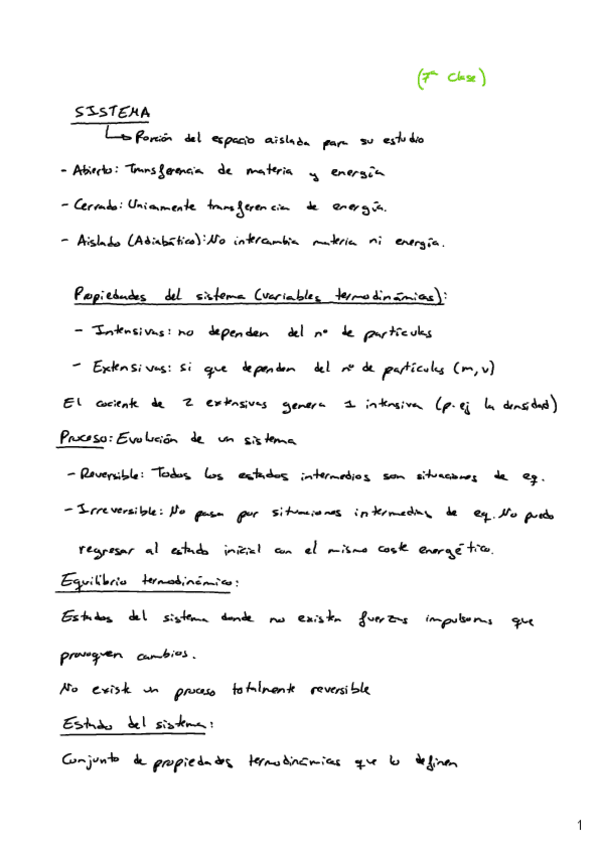 (7ª Clase)
SISTEMA
↳ Porción del espacio aislada para su estudio
- Abierto: Transferencia de materia y energía
- Cerrado: Unicamente transferencia de energía.
- Aislado (Adiabático): No intercambia materia ni energía.
Propiedades del sistema (variables termodinámicas):
- Intensivas: no dependen del nº de partículas
- Extensivas: si que dependen del nº de partículas (m, v)
El cociente de 2 extensivas genera 1 intensiva (p. ej la densidad)
Proceso: Evolución de un sistema
- Reversible: Todos los estados intermedios son situaciones de eq.
- Irreversible: No pasa por situaciones intermedias de eq. No puedo
regresar al estado inicial con el mismo coste energético.
Equilibrio termodinámico:
Estados del sistema donde no existen fuerzas impulsoras que
provoquen cambios.
No existe un proceso totalmente reversible
Estado del sistema:
Conjunto de propiedades termodinámicas que lo definen
1